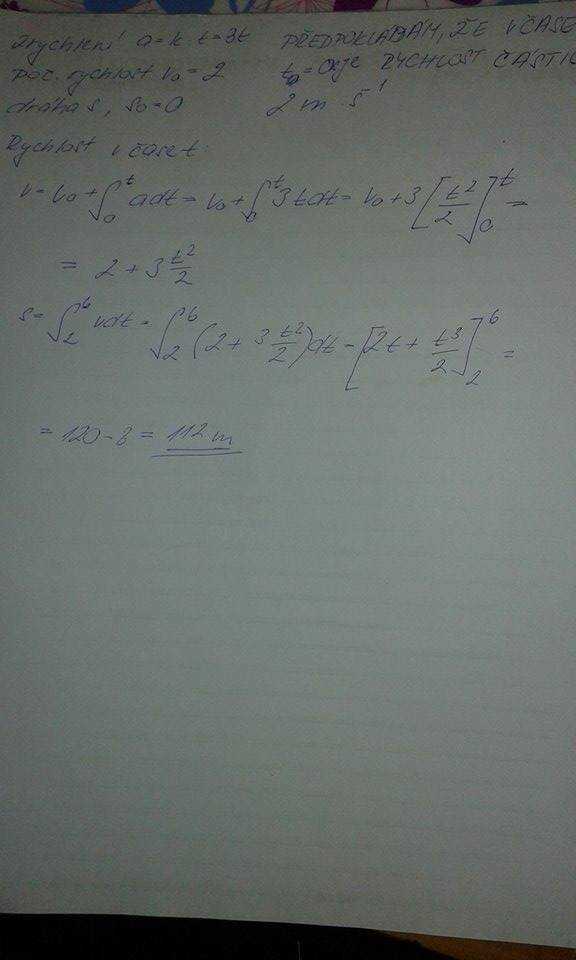 Zrychlení a = k · t = 3t
poč. rychlost v₀ = 2
dráha s, s₀ = 0
PŘEDPOKLÁDÁM, ŽE V ČASE
t₀ = 0 je RYCHLOST ČÁSTIC
2 m · s⁻¹
Rychlost v čase t:
v = v₀ + ∫₀ᵗ a dt = v₀ + ∫₀ᵗ 3t dt = v₀ + 3 [t²/2]₀ᵗ =
= 2 + 3 t²/2
s = ∫₂⁶ v dt = ∫₂⁶ (2 + 3 t²/2) dt = [2t + t³/2]₂⁶ =
= 120 - 8 = 112 m